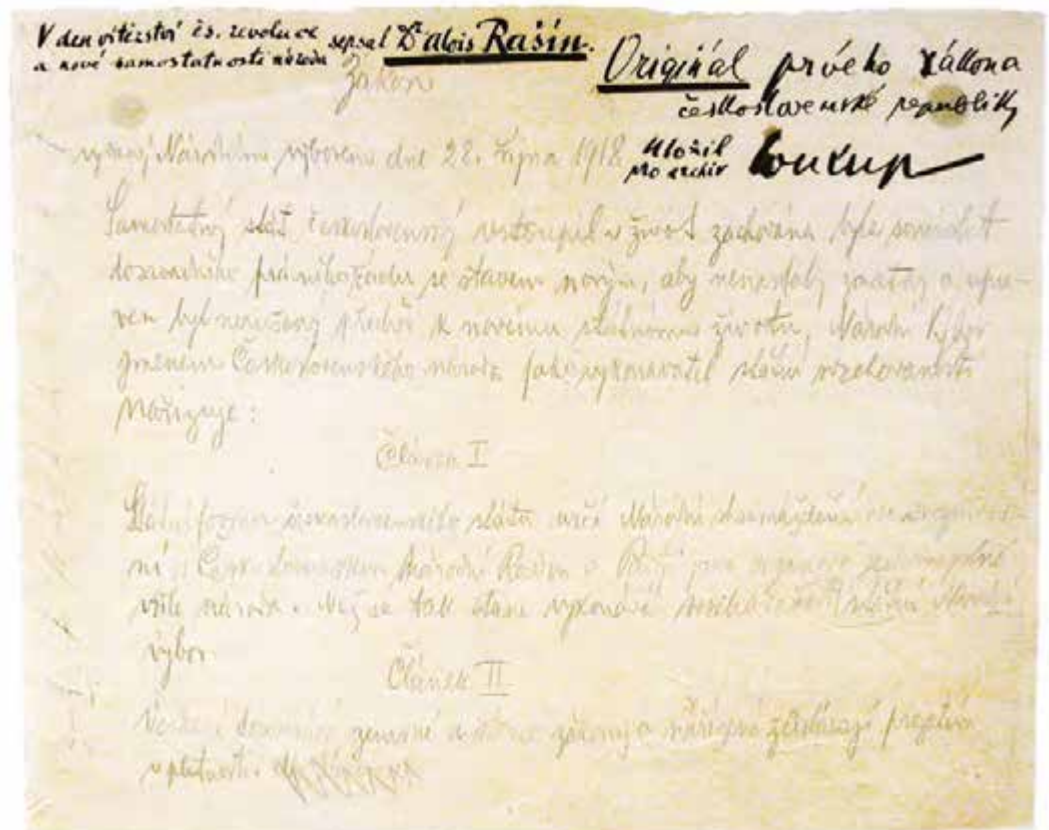 V den vítězství čs. revoluce
a nové samostatnosti národa
sepsal Dr Alois Rašín.
Originál prvého zákona
československé republiky
Uložil
pro archiv Soukup
Zákon
vydaný Národním výborem dne 28. října 1918
Samostatný stát československý vstoupil v život zachována byla souvislost
dosavadního právního řádu se stavem novým, aby nenastaly zmatky a upra-
ven byl nerušený přechod k novému státnímu životu, Národní Výbor
jménem Československého národa jako vykonavatel státní svrchovanosti
nařizuje:
Článek I
Státní formu československého státu určí Národní shromáždění
ní s Československou Národní Radou v Paříži jako orgánové jednomyslné
vůle národa. Než se tak stane vykonává státní
výbor.
Článek II
Veškeré dosavadní zemské a říšské zákony a nařízení zůstávají prozatím
v platnosti.